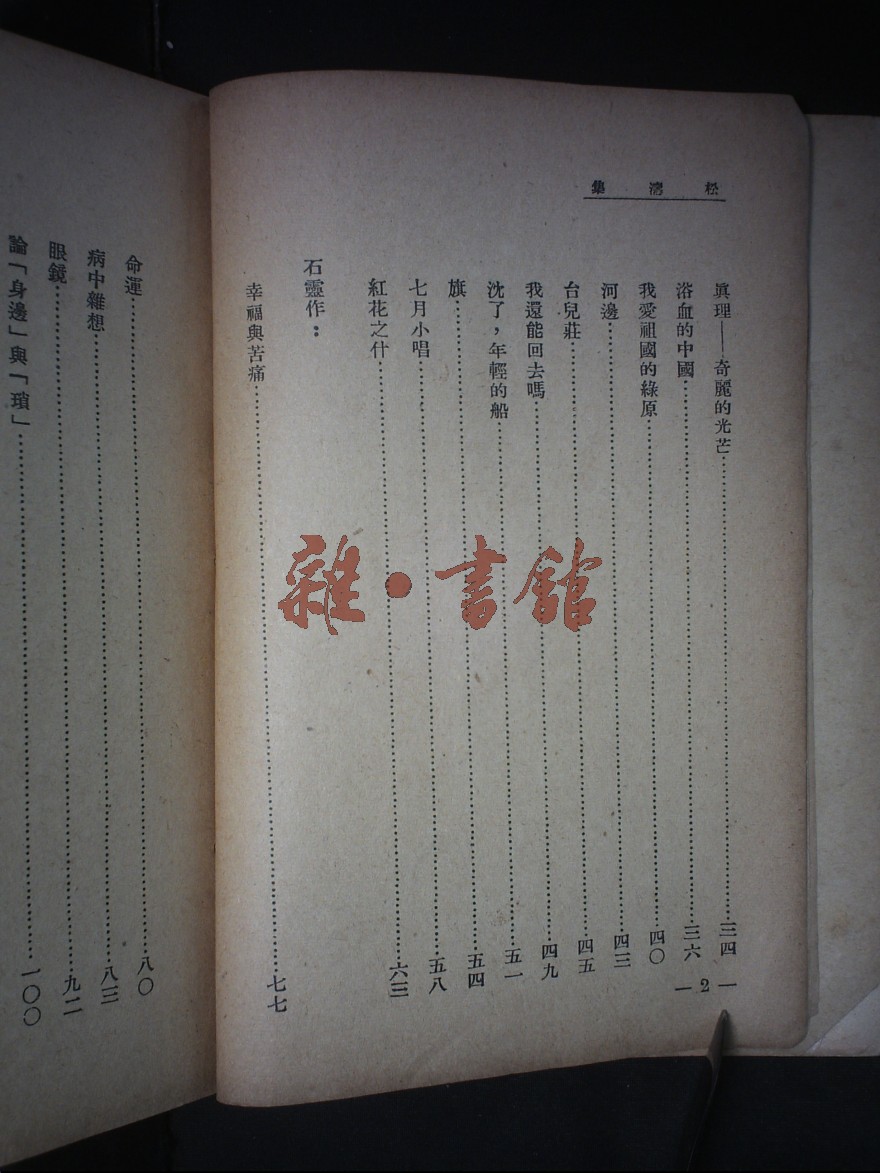 松濤集
眞理——奇麗的光芒……三四
浴血的中國……三六
我愛祖國的綠原……四〇
河邊……四三
台兒莊……四五
我還能回去嗎……四九
沈了，年輕的船……五一
旗……五四
七月小唱……五八
紅花之什……六三
石靈作：
幸福與苦痛……七七
— 2 —
命運……八〇
病中雜想……八三
眼鏡……九二
論「身邊」與「瑣」……一〇〇
雜·書館